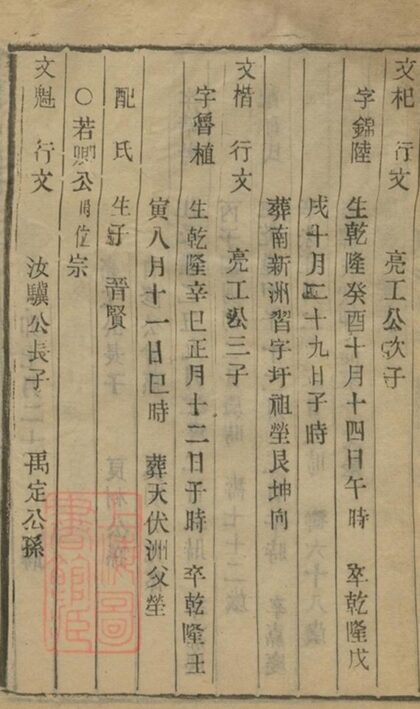 文杞 行文 亮工公次子
字錦陸 生乾隆癸酉十月十四日午時 卒乾隆戊
戌十月二十九日子時
葬南新洲習字圩祖塋艮坤向
文楷 行文 亮工公三子
字魯植 生乾隆辛巳正月十二日子時卒乾隆壬
寅八月十一日巳時 葬天伏洲父塋
配氏 生子 晋賢
○若卿公 位宗
文魁 行文 汝驥公長子 禹定公孫